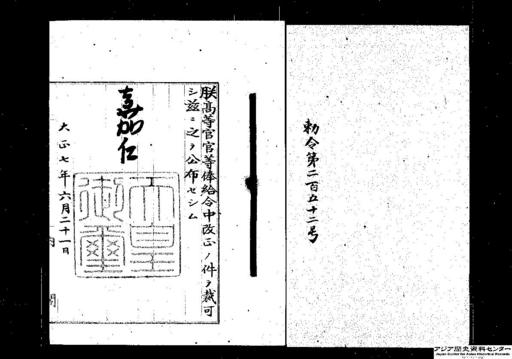 勅令第二百五十二号
朕高等官官等俸給令中改正ノ件ヲ裁可
シ茲ニ之ヲ公布セシム
嘉仁
天皇
御璽
大正七年六月二十一日
アジア歴史資料センター
Japan Center for Asian Historical Records